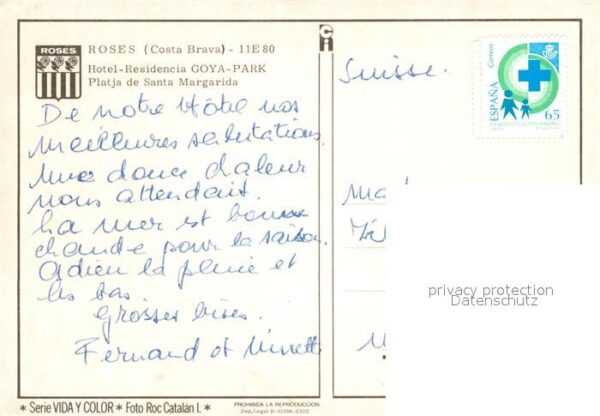 ROSES
ROSES (Costa Brava) - 11E80
Hotel-Residencia GOYA-PARK
Platja de Santa Margarida
De notre Hôtel nos
meilleures salutations.
Une douce chaleur
nous attendait.
La mer est bonne
chaude pour la saison.
Adieu la pluie et
les bas.
Grosses bises.
Fernand et Minett
* Serie VIDA Y COLOR * Foto Roc Catalán I. *
PROHIBIDA LA REPRODUCCION
Suisse.
Correos
ESPAÑA
65
privacy protection
Datenschutz